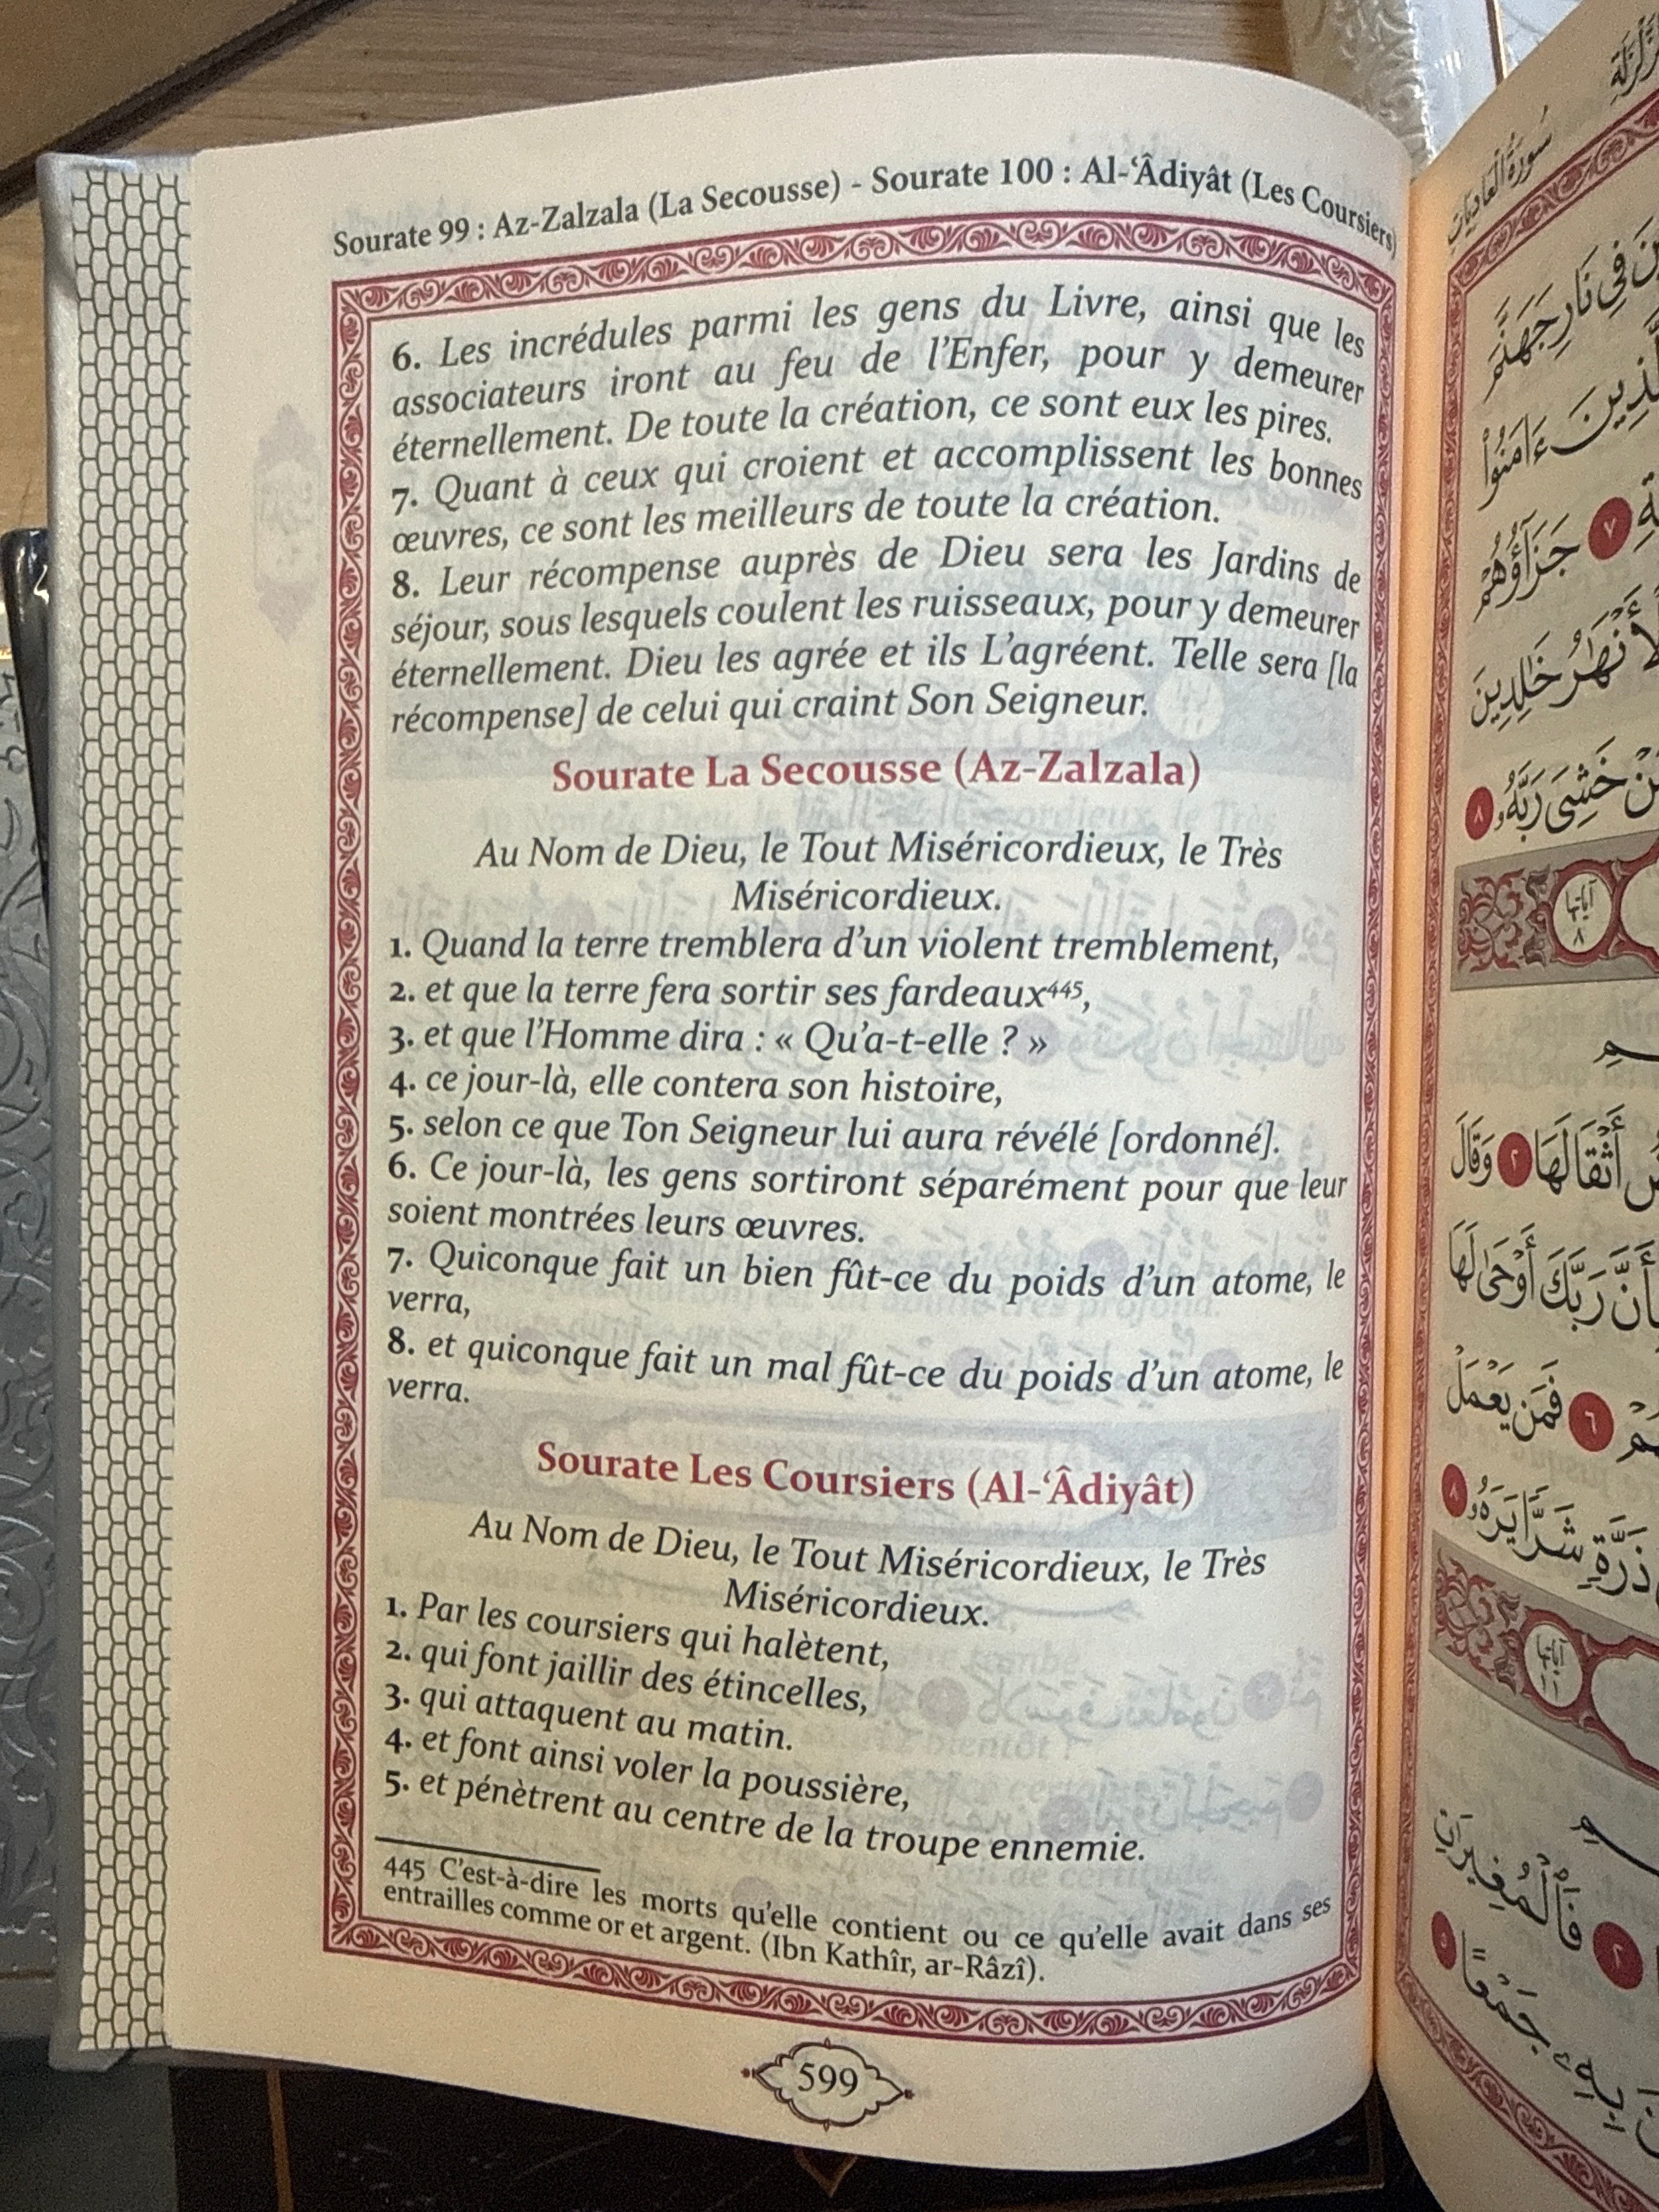 Sourate 99 : Az-Zalzala (La Secousse) - Sourate 100 : Al-‘Âdiyât (Les Coursiers)
6. Les incrédules parmi les gens du Livre, ainsi que les
associateurs iront au feu de l’Enfer, pour y demeurer
éternellement. De toute la création, ce sont eux les pires.
7. Quant à ceux qui croient et accomplissent les bonnes
œuvres, ce sont les meilleurs de toute la création.
8. Leur récompense auprès de Dieu sera les Jardins de
séjour, sous lesquels coulent les ruisseaux, pour y demeurer
éternellement. Dieu les agrée et ils L’agréent. Telle sera [la
récompense] de celui qui craint Son Seigneur.
Sourate La Secousse (Az-Zalzala)
Au Nom de Dieu, le Tout Miséricordieux, le Très
Miséricordieux.
1. Quand la terre tremblera d’un violent tremblement,
2. et que la terre fera sortir ses fardeaux⁴⁴⁵,
3. et que l’Homme dira : « Qu’a-t-elle ? »
4. ce jour-là, elle contera son histoire,
5. selon ce que Ton Seigneur lui aura révélé [ordonné].
6. Ce jour-là, les gens sortiront séparément pour que leur
soient montrées leurs œuvres.
7. Quiconque fait un bien fût-ce du poids d’un atome, le
verra,
8. et quiconque fait un mal fût-ce du poids d’un atome, le
verra.
Sourate Les Coursiers (Al-‘Âdiyât)
Au Nom de Dieu, le Tout Miséricordieux, le Très
Miséricordieux.
1. Par les coursiers qui halètent,
2. qui font jaillir des étincelles,
3. qui attaquent au matin.
4. et font ainsi voler la poussière,
5. et pénètrent au centre de la troupe ennemie.
445 C’est-à-dire les morts qu’elle contient ou ce qu’elle avait dans ses
entrailles comme or et argent. (Ibn Kathîr, ar-Râzî).
599
سُورَةُ الْعَادِيَاتِ
فِي نَارِ جَهَنَّمَ
ءَامَنُوا۟
٧ جَزَآؤُهُمْ
خَٰلِدِينَ
خَشِىَ رَبَّهُۥ ٨
آياتها
٨
أَثْقَالَهَا ٢ وَقَالَ
رَبَّكَ أَوْحَىٰ لَهَا
٦ فَمَن يَعْمَلْ
ذَرَّةٍ شَرًّا يَرَهُۥ ٨
آياتها
١١
٢ فَٱلْمُغِيرَٰتِ
بِهِۦ جَمْعًا ٥